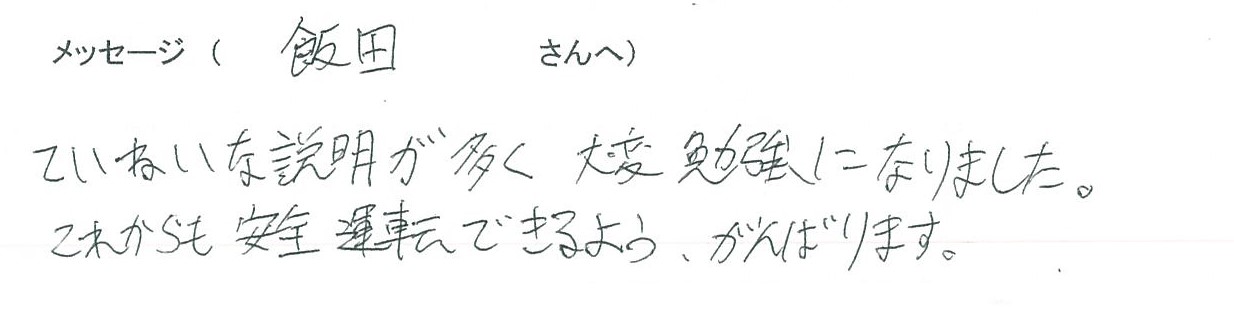 メッセージ（ 飯田 さんへ）
ていねいな説明が多く 大変勉強になりました。
これからも安全運転できるよう、がんばります。